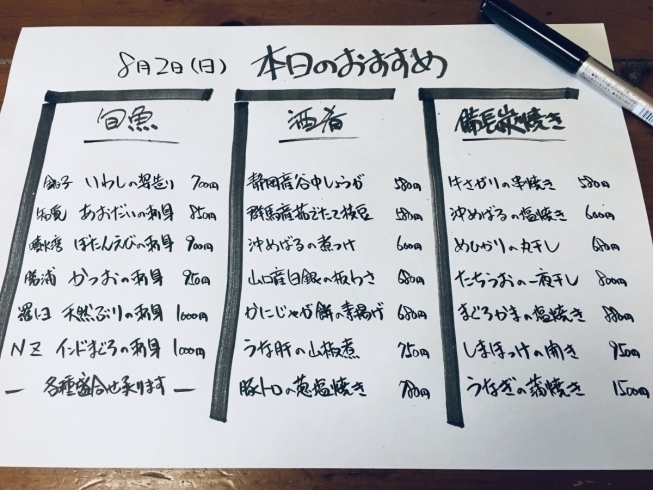 8月2日(日) 本日のおすすめ
旬魚
銚子 いわしの姿造り 700円
あおだいの刺身 850円
噴火湾 ぼたんえびの刺身 900円
勝浦 かつおの刺身 950円
羅臼 天然ぶりの刺身 1000円
NZ インドまぐろの刺身 1000円
ー 各種盛合せ承ります ー
酒肴
静岡産谷中しょうが 580円
群馬産茹でたて枝豆 580円
沖めばるの煮つけ 600円
山口産白銀の板わさ 680円
かにじゃが餅の素揚げ 680円
うな肝の山椒煮 750円
豚トロの葱塩焼き 780円
備長炭焼き
牛さがりの串焼き 580円
沖めばるの塩焼き 600円
めひかりの丸干し 680円
たちうおの一夜干し 800円
まぐろかまの塩焼き 880円
しまほっけの開き 950円
うなぎの蒲焼き 1500円